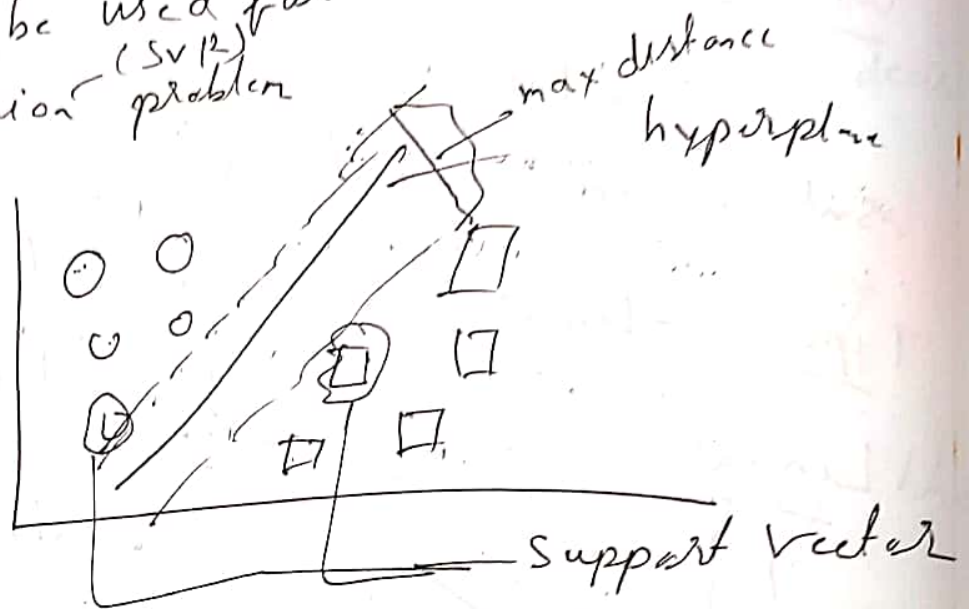 be used
(SVR)
ion problem
max distance
hyperplane
support vector